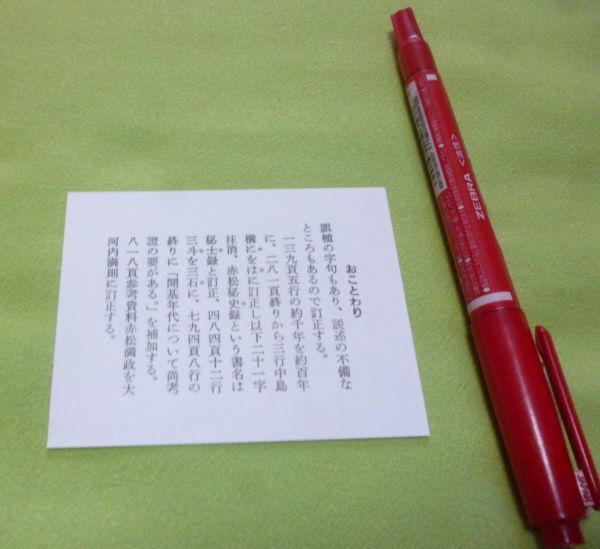 おことわり
誤植の字句もあり、説述の不備な
ところもあるので訂正する。
一三九頁五行の約千年を約百年
に、二八一頁終りから三行中島
構にをはに訂正し以下二十一字
抹消、赤松秘史録という書名は
秘士録と訂正、四八四頁十二行
三斗を三石に、七九四頁八行の
終りに「開基年代について尚考
證の要がある。」を補加する。
八一八頁参考資料赤松満政を大
河内満則に訂正する。
ZEBRA